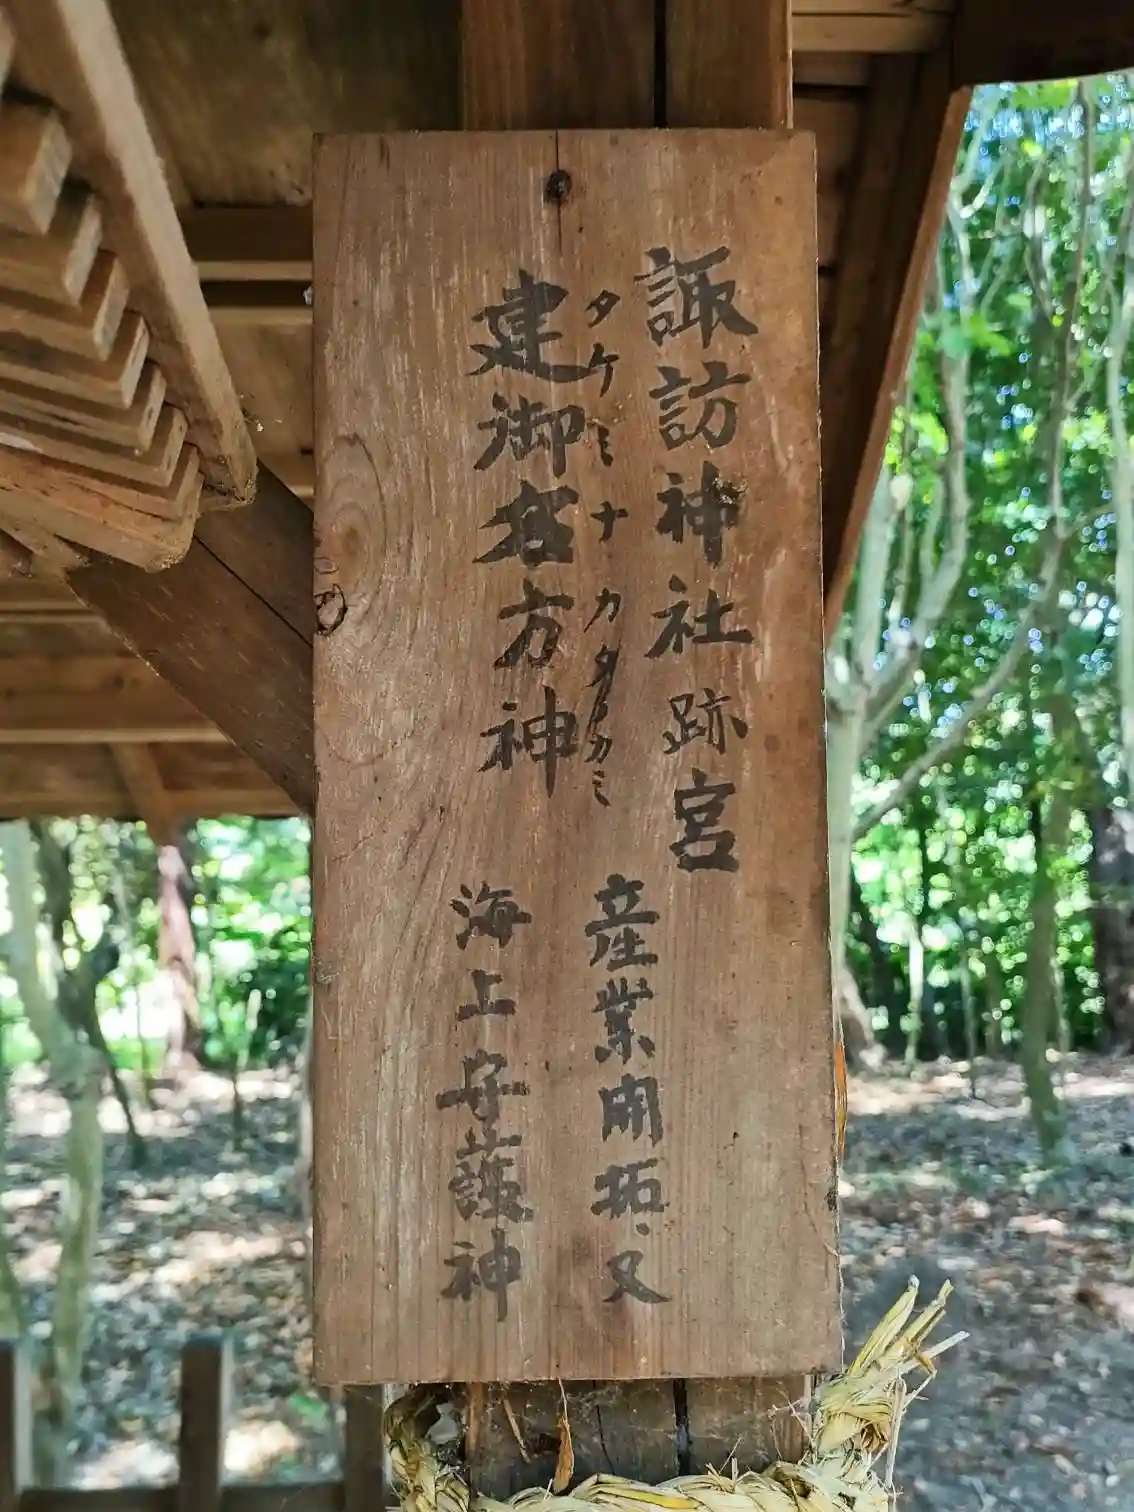 諏訪神社跡宮
タケミナカタノカミ
建御名方神
産業開拓、又
海上守護神